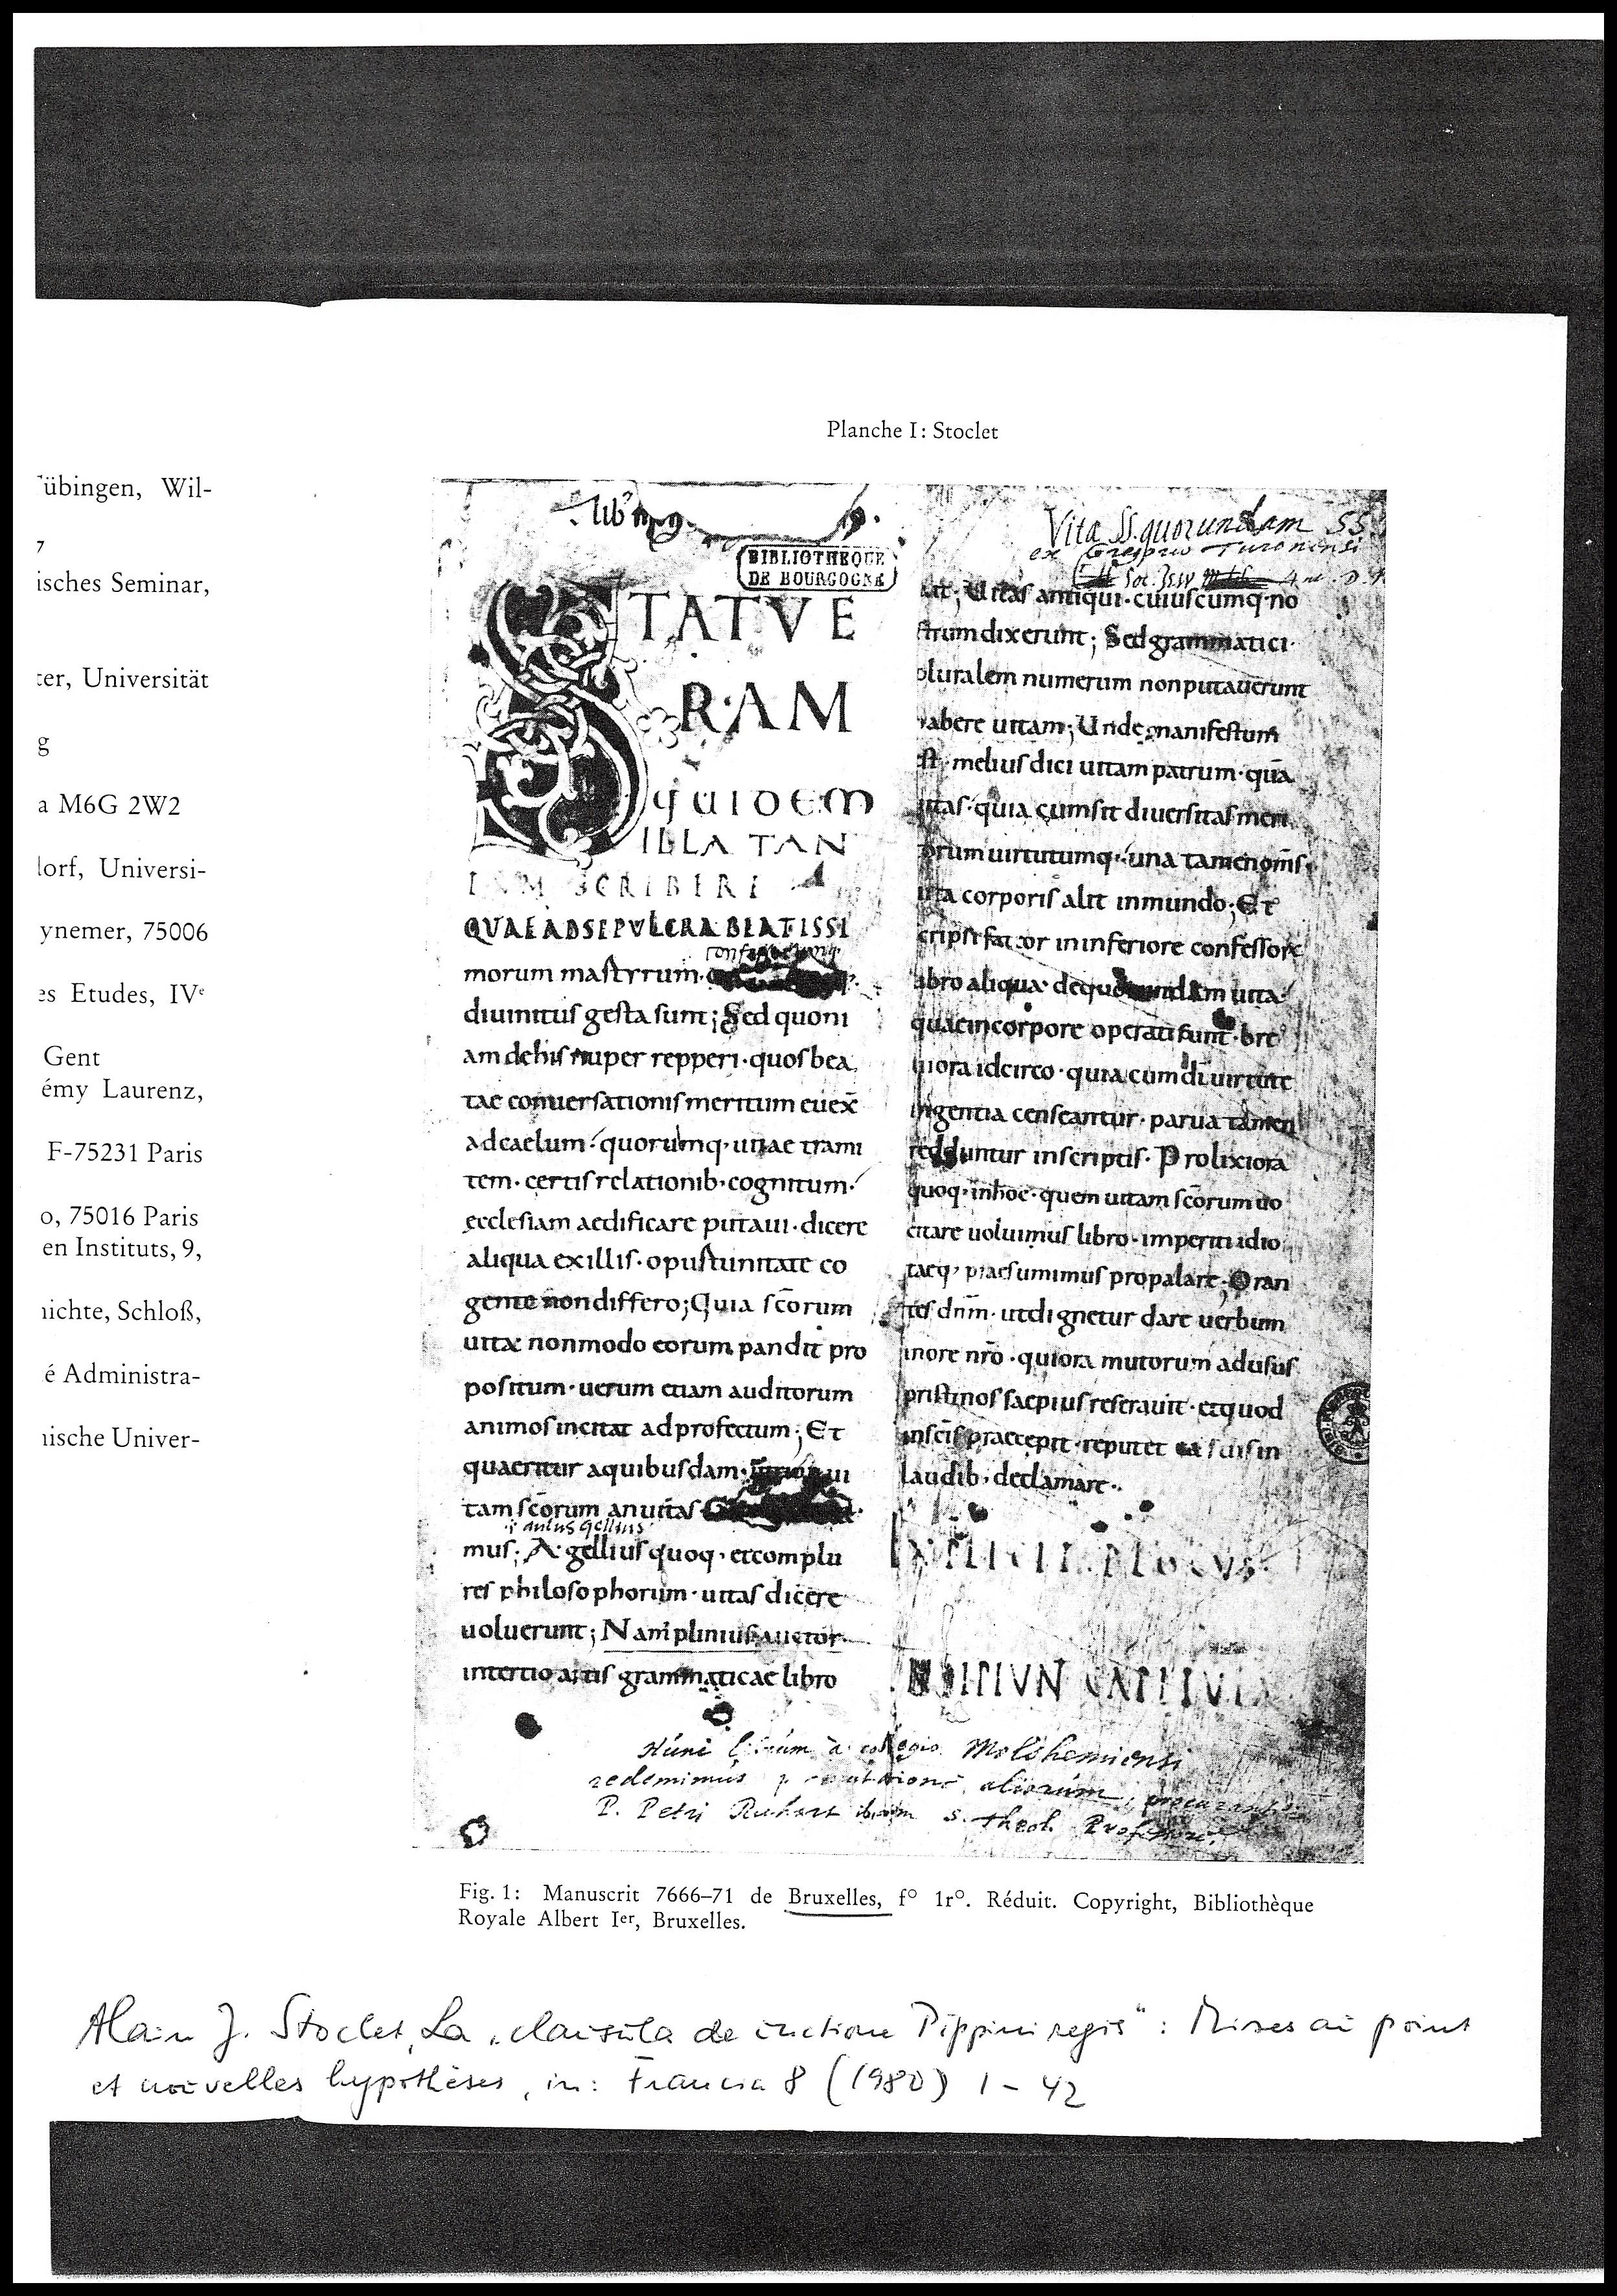 Planche I: Stoclet
übingen, Wil-
7
isches Seminar,
ter, Universität
g
a M6G 2W2
lorf, Universi-
ynemer, 75006
es Etudes, IVe
Gent
émy Laurenz,
F-75231 Paris
o, 75016 Paris
en Instituts, 9,
nichte, Schloß,
é Administra-
nische Univer-
lib
BIBLIOTHEQUE
DE BOURGOGNE
STATVE
RAM
quidem
ILLA TAN
TVM SCRIBERE
QVAE AD SEPVLCRA BEATISSI
morum martyrum
diuinitus gesta sunt; Sed quoni
am de his nuper repperi · quos bea
tae conuersationis meritum euex̄
ad caelum · quorumq· uitae trami
tem · certis relationib· cognitum ·
ecclesiam aedificare putaui · dicere
aliqua ex illis · oportunitate co
gente non differo; Quia scōrum
uita non modo eorum pandit pro
positum · uerum etiam auditorum
animos incitat ad profectum; Et
quaeritur a quibusdam · utrum ui
tam scōrum an uitas
aulus gellius
mus; A· gellius quoq· et complu
res philosophorum · uitas dicere
uoluerunt; Nam plinius auctor
in tertio artis grammaticae libro
Vita SS. quorundam SS.
ex Gregorio Turonensi
ait; Uitas antiqui · cuiuscumq· no
strum dixerunt; Sed grammatici ·
pluralem numerum non putauerunt
habere uitam; Unde manifestum
est · melius dici uitam patrum · quā
uitas · quia cum sit diuersitas meri
torum uirtutumq· una tamen om̄s
uita corporis alit in mundo; Et
scripsi fateor in inferiore confessorū
libro aliqua · de quorundam uita
quae in corpore operati sunt · bre
uiora idcirco · quia cum dī uirtute
ingentia censeantur · parua tamen
redduntur in scriptis · Prolixiora
quoq· in hoc · quem uitam scōrum uo
citare uoluimus libro · imperiti idio
taeq· praesumimus propalare; Oran
tes dn̄m · ut dignetur dare uerbum
in ore nr̄o · qui ora mutorum ad usus
pristinos saepius reserauit · et quod
in scīs praecepit · reputet ea suis in
laudib· declamare ·
Hunc librum a collegio Molshemiensi
redemimus aliorum, procurante
P. Petri S. Theol. Professore
Fig. 1: Manuscrit 7666–71 de Bruxelles, f° 1r°. Réduit. Copyright, Bibliothèque
Royale Albert Ier, Bruxelles.
Alain J. Stoclet, La „clausula de unctione Pippini regis“: Mises au point
et nouvelles hypothèses, in: Francia 8 (1980) 1 – 42